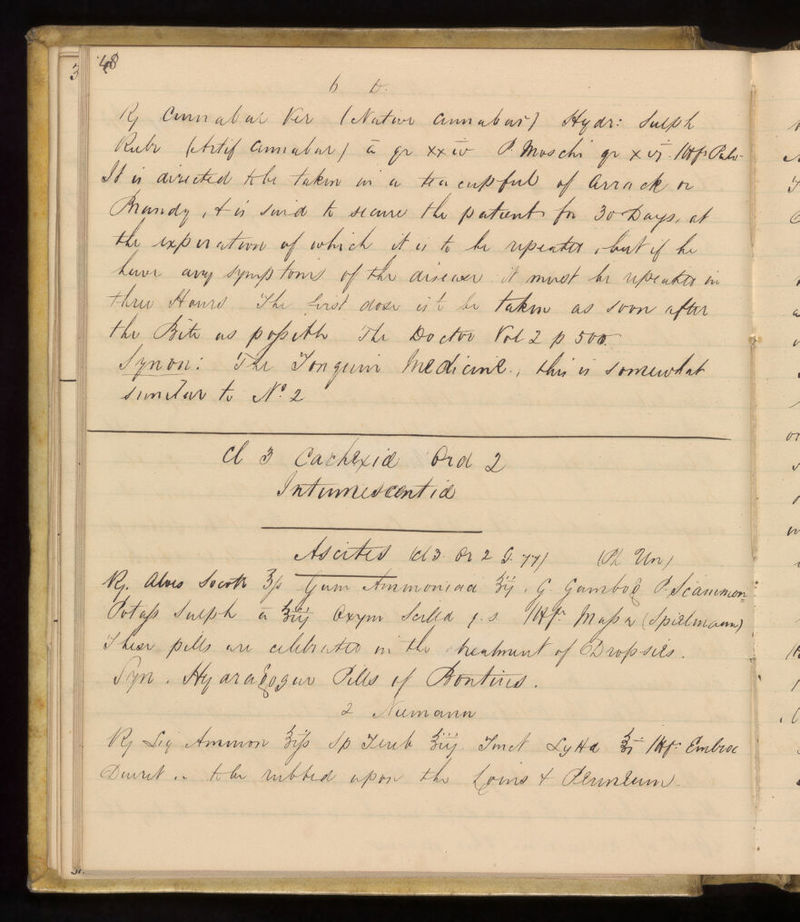 48
6 D.
Rx Cinnabar Ver (Native Cinnabar) Hydr: Sulph
Rubr (Artif Cinnabar) a gr xxiv P. Moschi gr xvi Mf Pulv
It is directed to be taken in a tea cupful of Arrack or
Brandy, & is said to secure the patient for 30 Days, at
the expiration of which it is to be repeated, but if he
have any symptoms of the disease it must be repeated in
three Hours The first dose is to be taken as soon after
the Bite as possible The Doctor Vol 2 p 500.
Synon: The Tonquin Medicine, this is somewhat
similar to No. 2
Cl 3 Cachexia Ord 2
Intumescentia
Ascites (Cl 3. Or 2 G. 77) (Ph Un)
Rx. Aloes Socotr ʒſs Gum Ammoniac ʒij. G. Gambog P. Scammon
Potass Sulph a ʒiij Oxym Scilla q.s. Mf. Massa (Spielmann)
These pills are celebrated in the treatment of Dropsies.
Syn. Hydragogue Pills of Bontius.
2 Niemann
Rx Liq Ammon ʒiſs Sp Tereb ʒiij Tinct Lytta ʒi Mf. Embroc
Diuret .. to be rubbed upon the Loins & Perineum